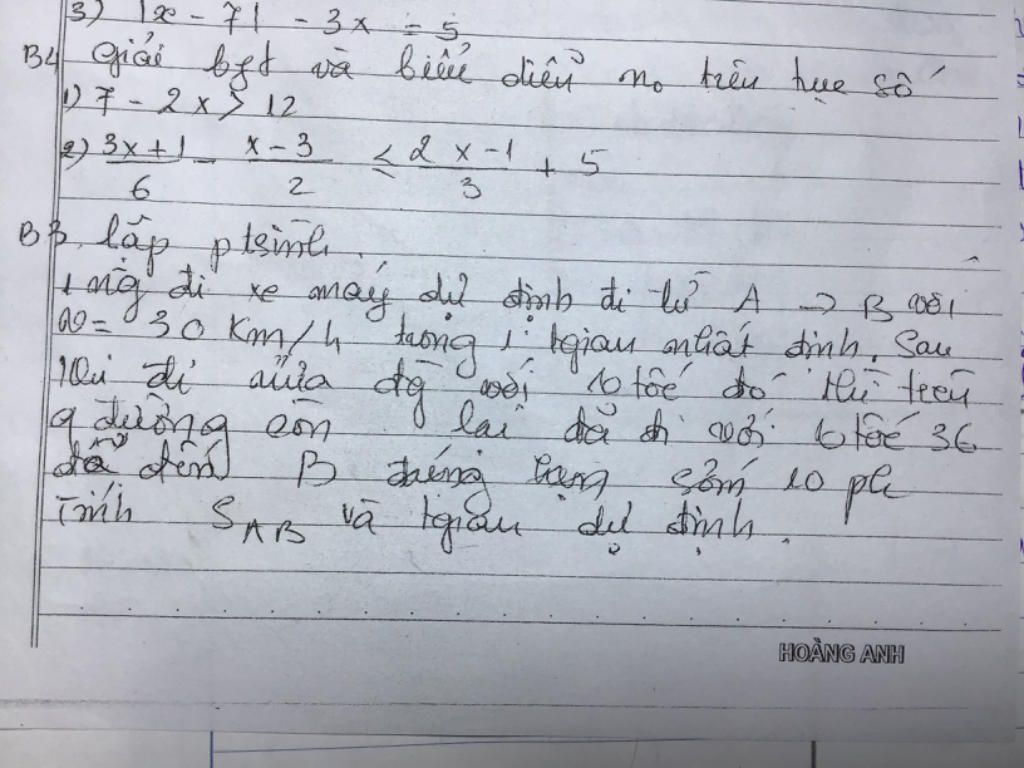 3) |x - 7| - 3x = 5
B4 giải bpt và biểu diễn no trên trục số
1) 7 - 2x > 12
2) \frac{3x+1}{6} - \frac{x-3}{2} ≤ \frac{2x-1}{3} + 5
B3. lập ptrình.
1 ng đi xe máy dự định đi từ A → B với
v = 30 Km/h trong 1 tgian nhất định. Sau
khi đi nửa đg với v tốc đó thì trên
q đường còn lại đã đi với v tốc 36
đến B đúng hạn sớm 10 ph
Tính S_{AB} và tgian dự định.
HOÀNG ANH